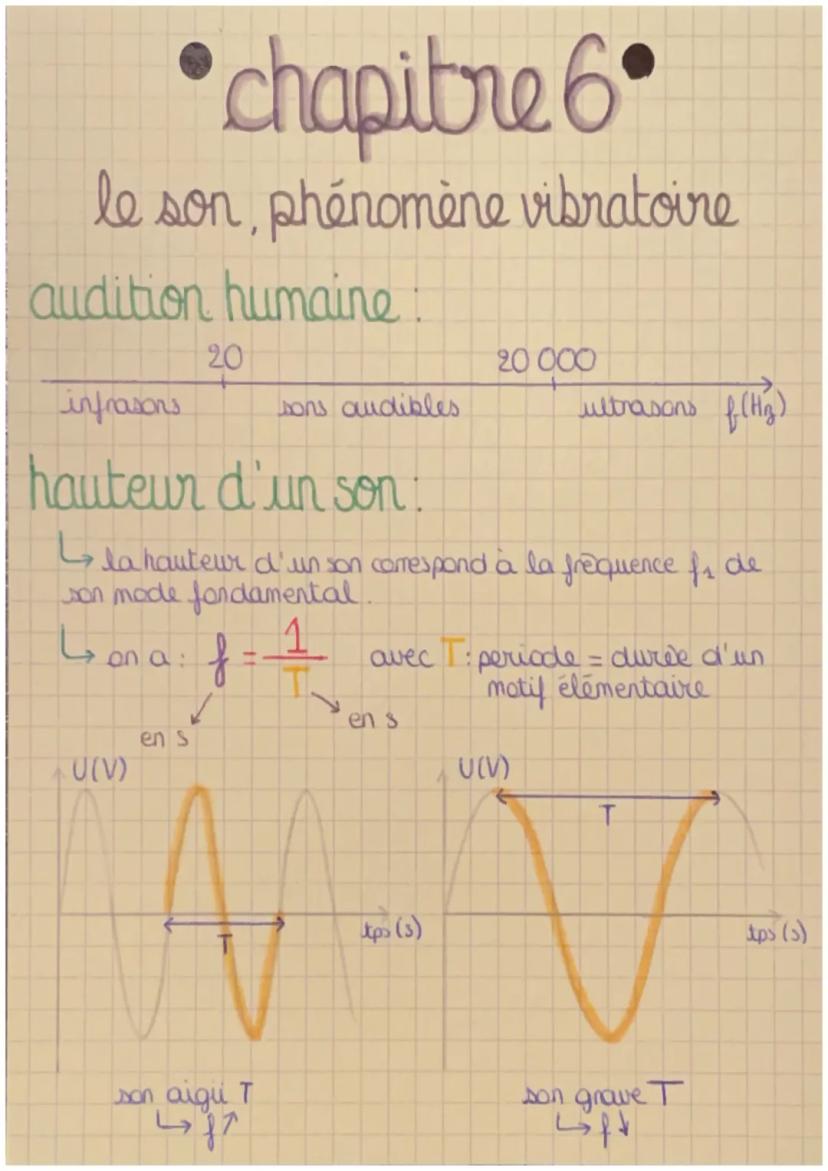 chapitre 6
le son, phénomène vibratoire
audition humaine :
20 20 000
infrasons sons audibles ultrasons f(Hz)
hauteur d'un son :
↳ la hauteur d'un son correspond à la fréquence f₁ de
son mode fondamental.
↳ on a : f = 1/T avec T : periode = durée d'un
motif élémentaire
en s en s
U(V) U(V)
T
T
tps (s) tps (s)
son aigü T son grave T
↳ f↑ ↳ f↓